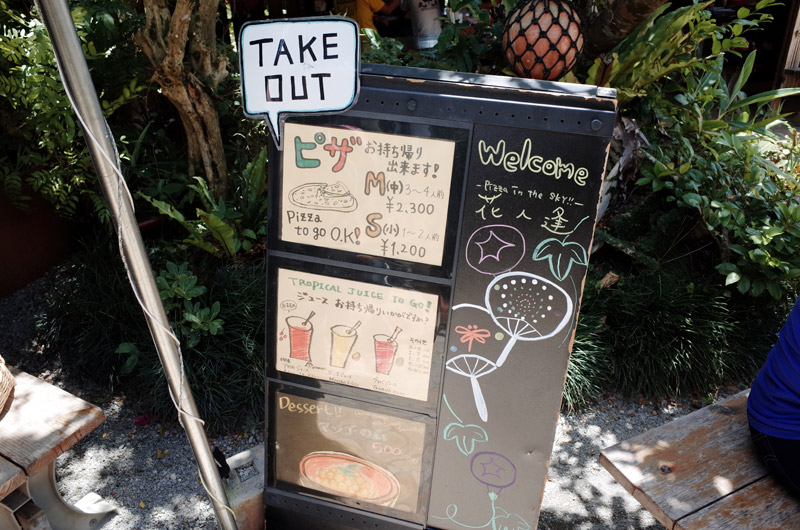 TAKE
OUT
ピザ お持ち帰り
出来ます!
M(中) 3~4人前
¥2,300
Pizza
to go O.K!
S(小) 1~2人前
¥1,200
Welcome
-Pizza in the sky!!-
花人逢
TROPICAL JUICE TO GO!
ジュース お持ち帰りいかがですか?
Dessert!!
マンゴー
500